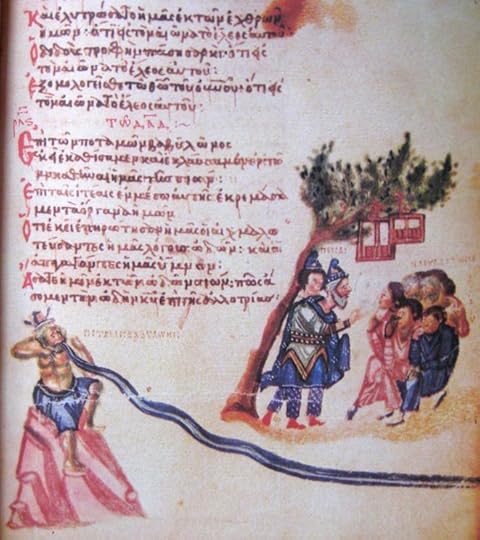 Καὶ ἐλυτρώσατο ἡμᾶς ἐκ τῶν ἐχθρῶν
ἡμῶν· ὅτι εἰς τὸν αἰῶνα τὸ ἔλεος αὐτοῦ
Ὁ διδοὺς τροφὴν πάσῃ σαρκί· ὅτι εἰς
τὸν αἰῶνα τὸ ἔλεος αὐτοῦ:
Ἐξομολογεῖσθε τῷ θῶ τοῦ οὐνοῦ· ὅτι εἰς
τὸν αἰῶνα τὸ ἔλεος αὐτοῦ:
ΤῶΔΑΔ:
Ἐπὶ τῶν ποταμῶν βαβυλῶνος
ἐκεῖ ἐκαθίσαμεν καὶ ἐκλαύσαμεν ἐν τῷ
μνησθῆναι ἡμᾶς τὴν σιών:
Ἐπὶ ταῖς ἰτέαις ἐν μέσῳ αὐτῆς ἐκρεμάσα
μεν τὰ ὄργανα ἡμῶν
Ὅτι ἐκεῖ ἐπηρώτησαν ἡμᾶς οἱ αἰχμαλω
τεύσαντες ἡμᾶς λόγους ᾠδῶν: καὶ οἱ
ἀπαγαγόντες ἡμᾶς ὕμνον:
Ἄσατε ἡμῖν ἐκ τῶν ᾠδῶν σιών: πῶς ἄ
σωμεν τὴν ᾠδὴν κυ ἐπὶ γῆς ἀλλοτρίας: